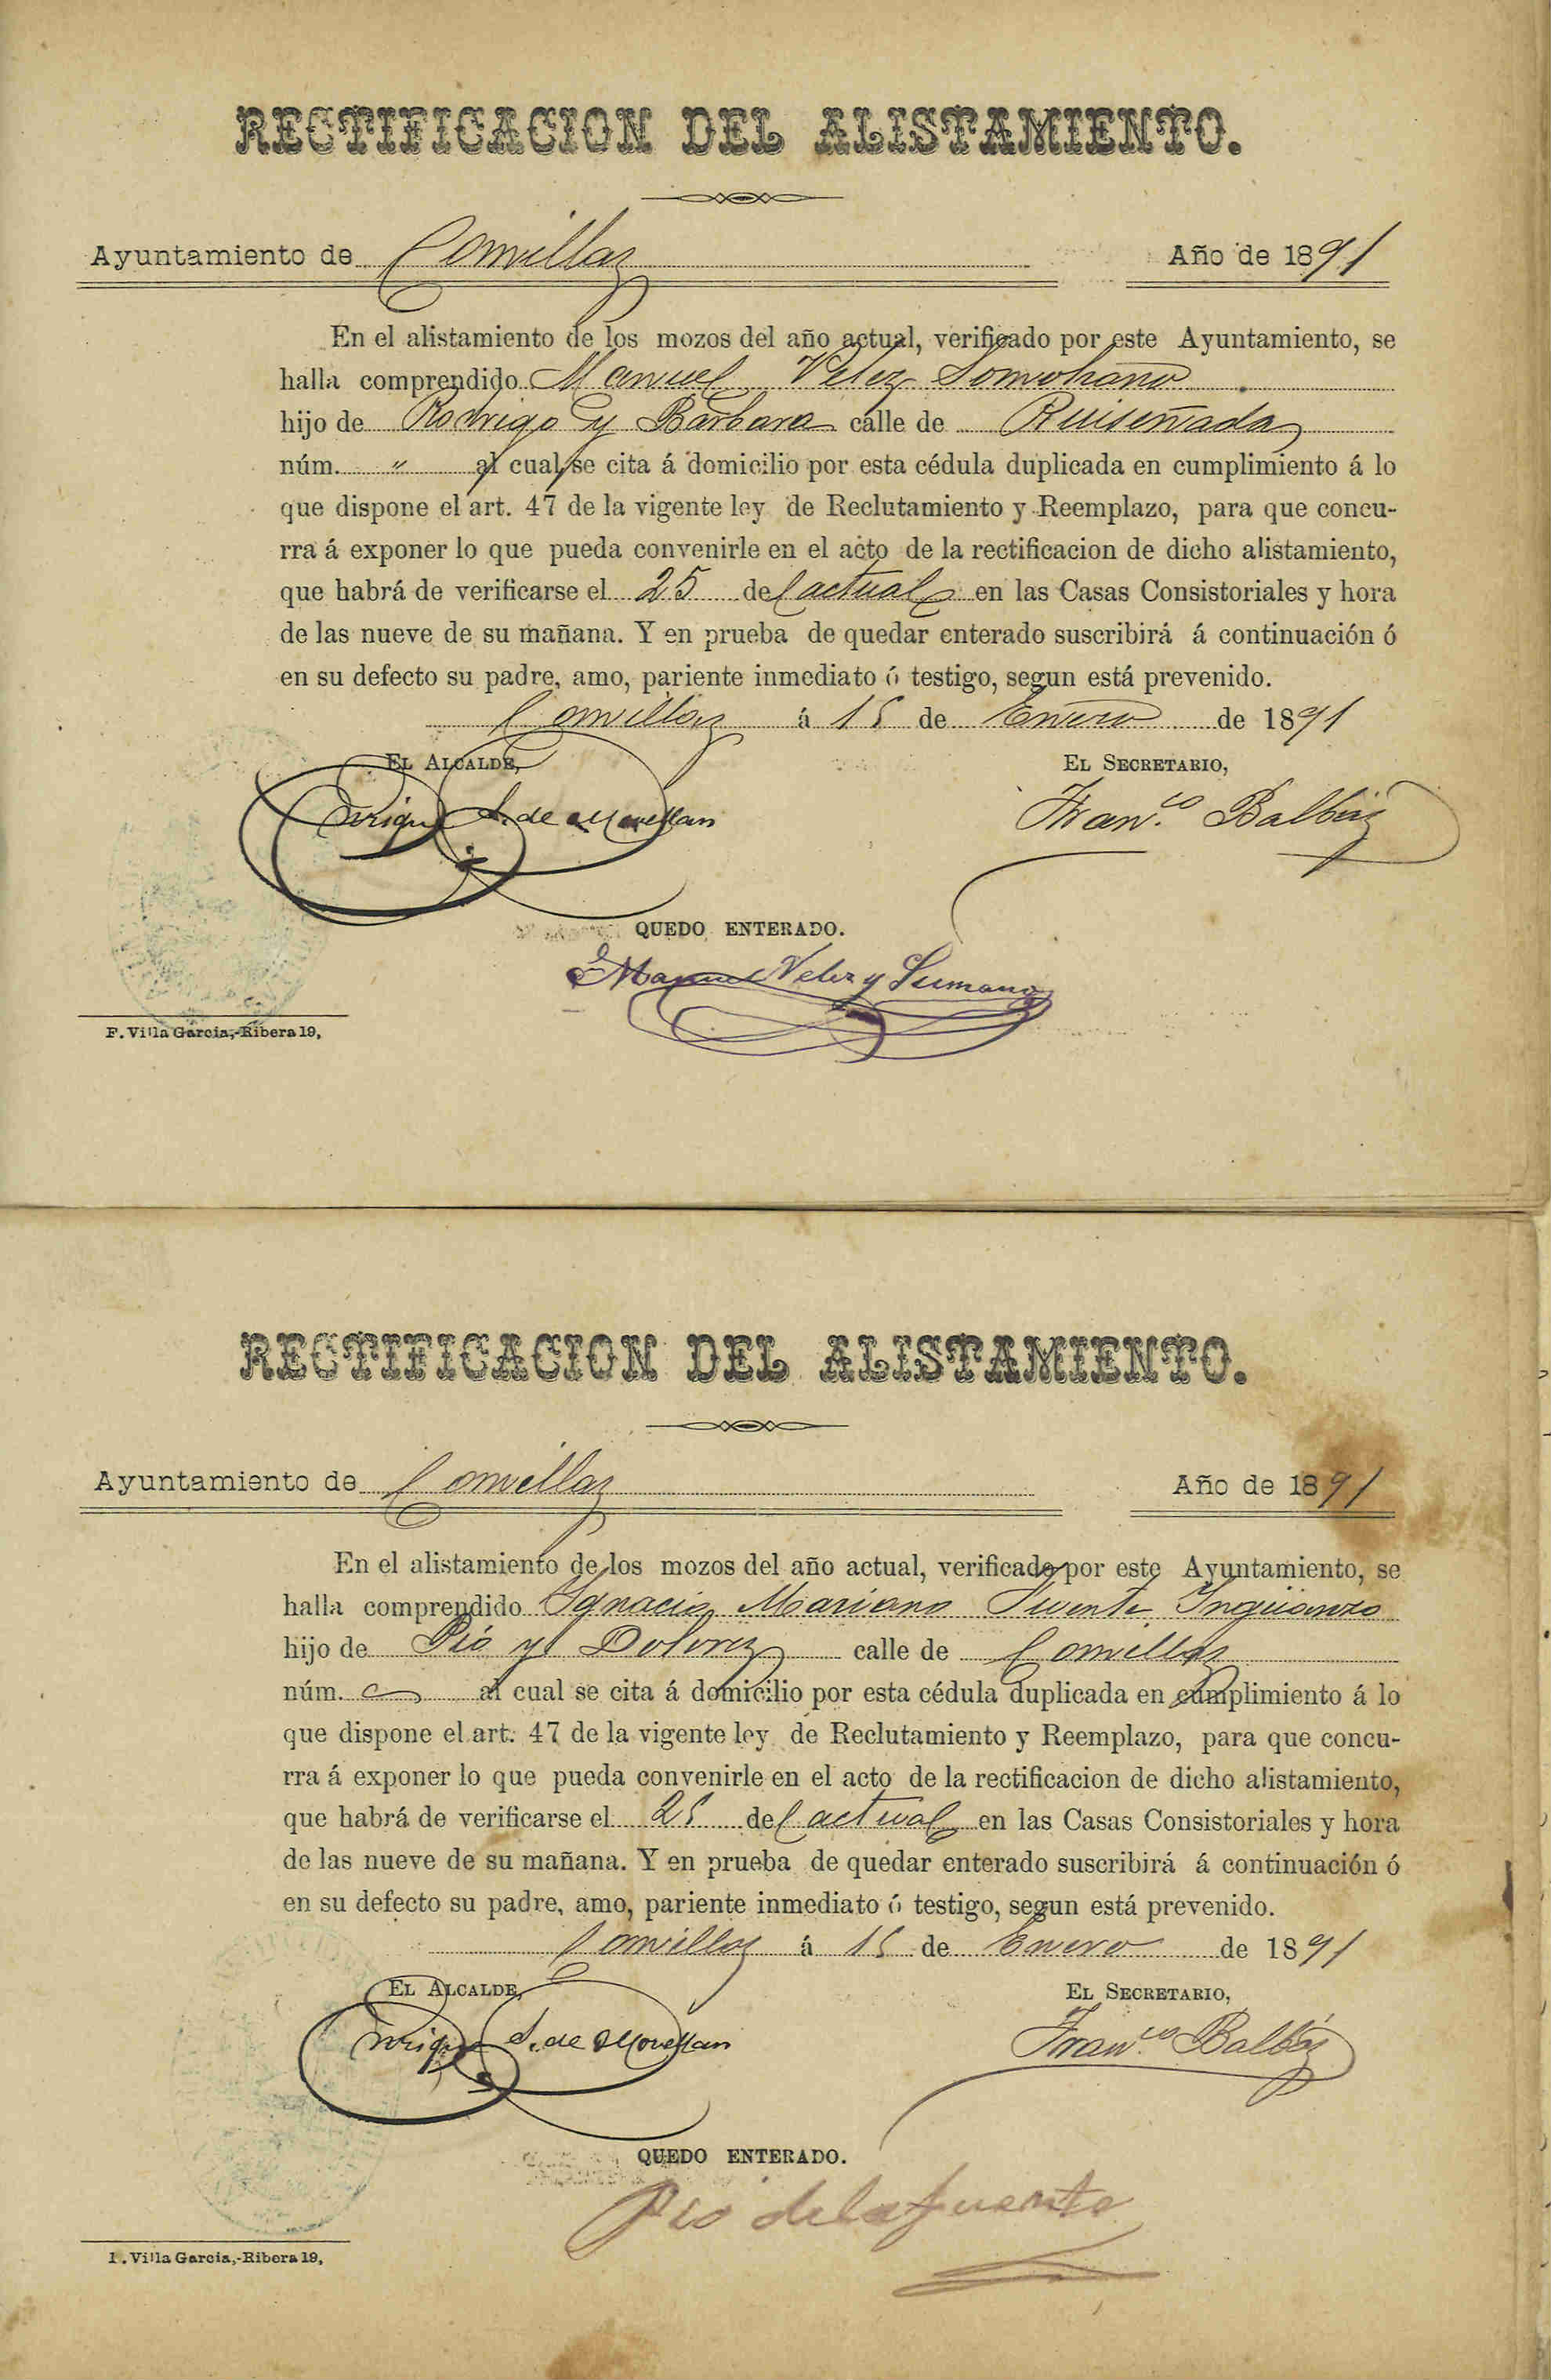 RECTIFICACION DEL ALISTAMIENTO.
Ayuntamiento de Comillas Año de 1891
En el alistamiento de los mozos del año actual, verificado por este Ayuntamiento, se
halla comprendido Manuel Velez Somohano
hijo de Rodrigo y Bárbara calle de Ruiseñada
núm. " al cual se cita á domicilio por esta cédula duplicada en cumplimiento á lo
que dispone el art. 47 de la vigente ley de Reclutamiento y Reemplazo, para que concu-
rra á exponer lo que pueda convenirle en el acto de la rectificacion de dicho alistamiento,
que habrá de verificarse el 25 del actual en las Casas Consistoriales y hora
de las nueve de su mañana. Y en prueba de quedar enterado suscribirá á continuación ó
en su defecto su padre, amo, pariente inmediato ó testigo, segun está prevenido.
Comillas á 15 de Enero de 1891
EL ALCALDE, EL SECRETARIO,
Enrique S. de Movellan Franco. Balbás
QUEDO ENTERADO.
Manuel Velez y Sumano
F. Villa Garcia,-Ribera 19,
RECTIFICACION DEL ALISTAMIENTO.
Ayuntamiento de Comillas Año de 1891
En el alistamiento de los mozos del año actual, verificado por este Ayuntamiento, se
halla comprendido Ygnacio Mariano Fuente Ynguanzo
hijo de Pió y Dolores calle de Comillas
núm. al cual se cita á domicilio por esta cédula duplicada en cumplimiento á lo
que dispone el art. 47 de la vigente ley de Reclutamiento y Reemplazo, para que concu-
rra á exponer lo que pueda convenirle en el acto de la rectificacion de dicho alistamiento,
que habrá de verificarse el 25 del actual en las Casas Consistoriales y hora
de las nueve de su mañana. Y en prueba de quedar enterado suscribirá á continuación ó
en su defecto su padre, amo, pariente inmediato ó testigo, segun está prevenido.
Comillas á 15 de Enero de 1891
EL ALCALDE, EL SECRETARIO,
Enrique S. de Movellan Franco. Balbás
QUEDO ENTERADO.
Pio de la fuente
I. Villa Garcia,-Ribera 19,